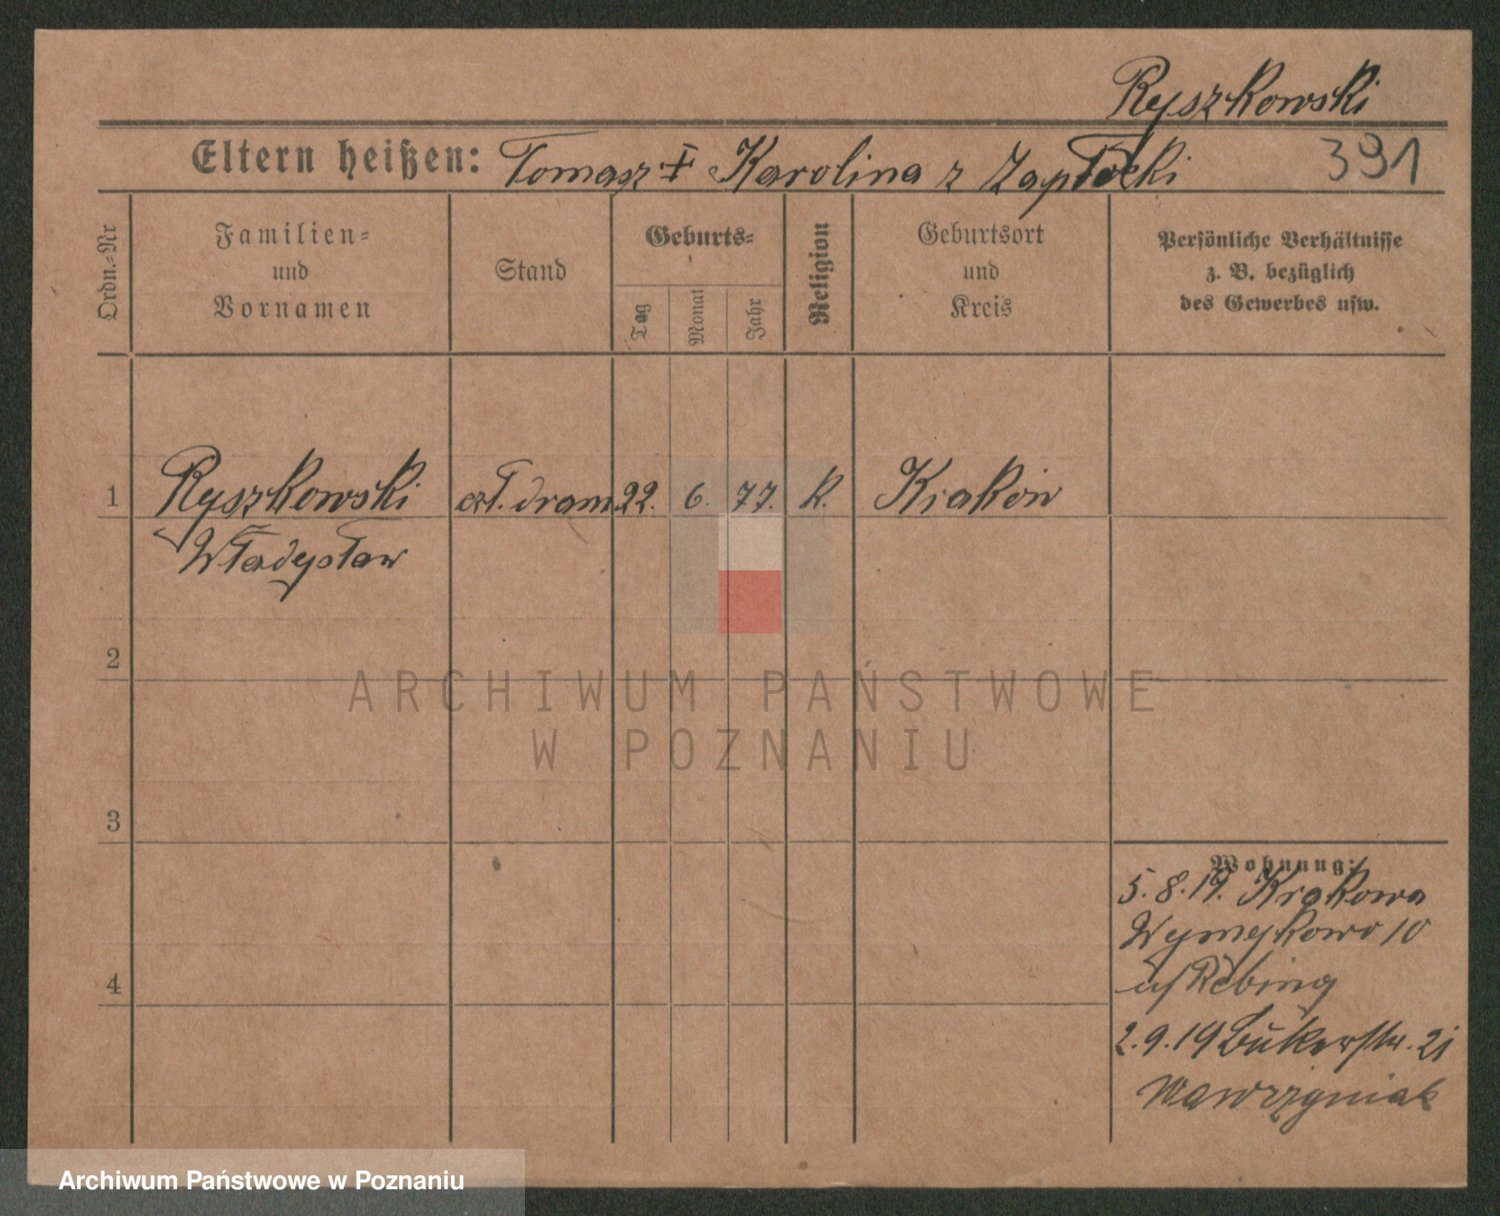 Ryszkowski
Eltern heißen: Tomasz + Karolina z Zapłocki
391
Ordn.=Nr
Familien=
und
Vornamen
Stand
Geburts=
Tag
Monat
Jahr
Religion
Geburtsort
und
Kreis
Persönliche Verhältnisse
z. B. bezüglich
des Gewerbes usw.
1 Ryszkowski art. dram. 22. 6. 77. K. Kraków
Władysław
2
3
4
Wohnung:
5.8.19. Krakowa
10
b/ Rebing
2.9.19 Bukerstr. 21
Wawrzyniak
ARCHIWUM PAŃSTWOWE
W POZNANIU
Archiwum Państwowe w Poznaniu